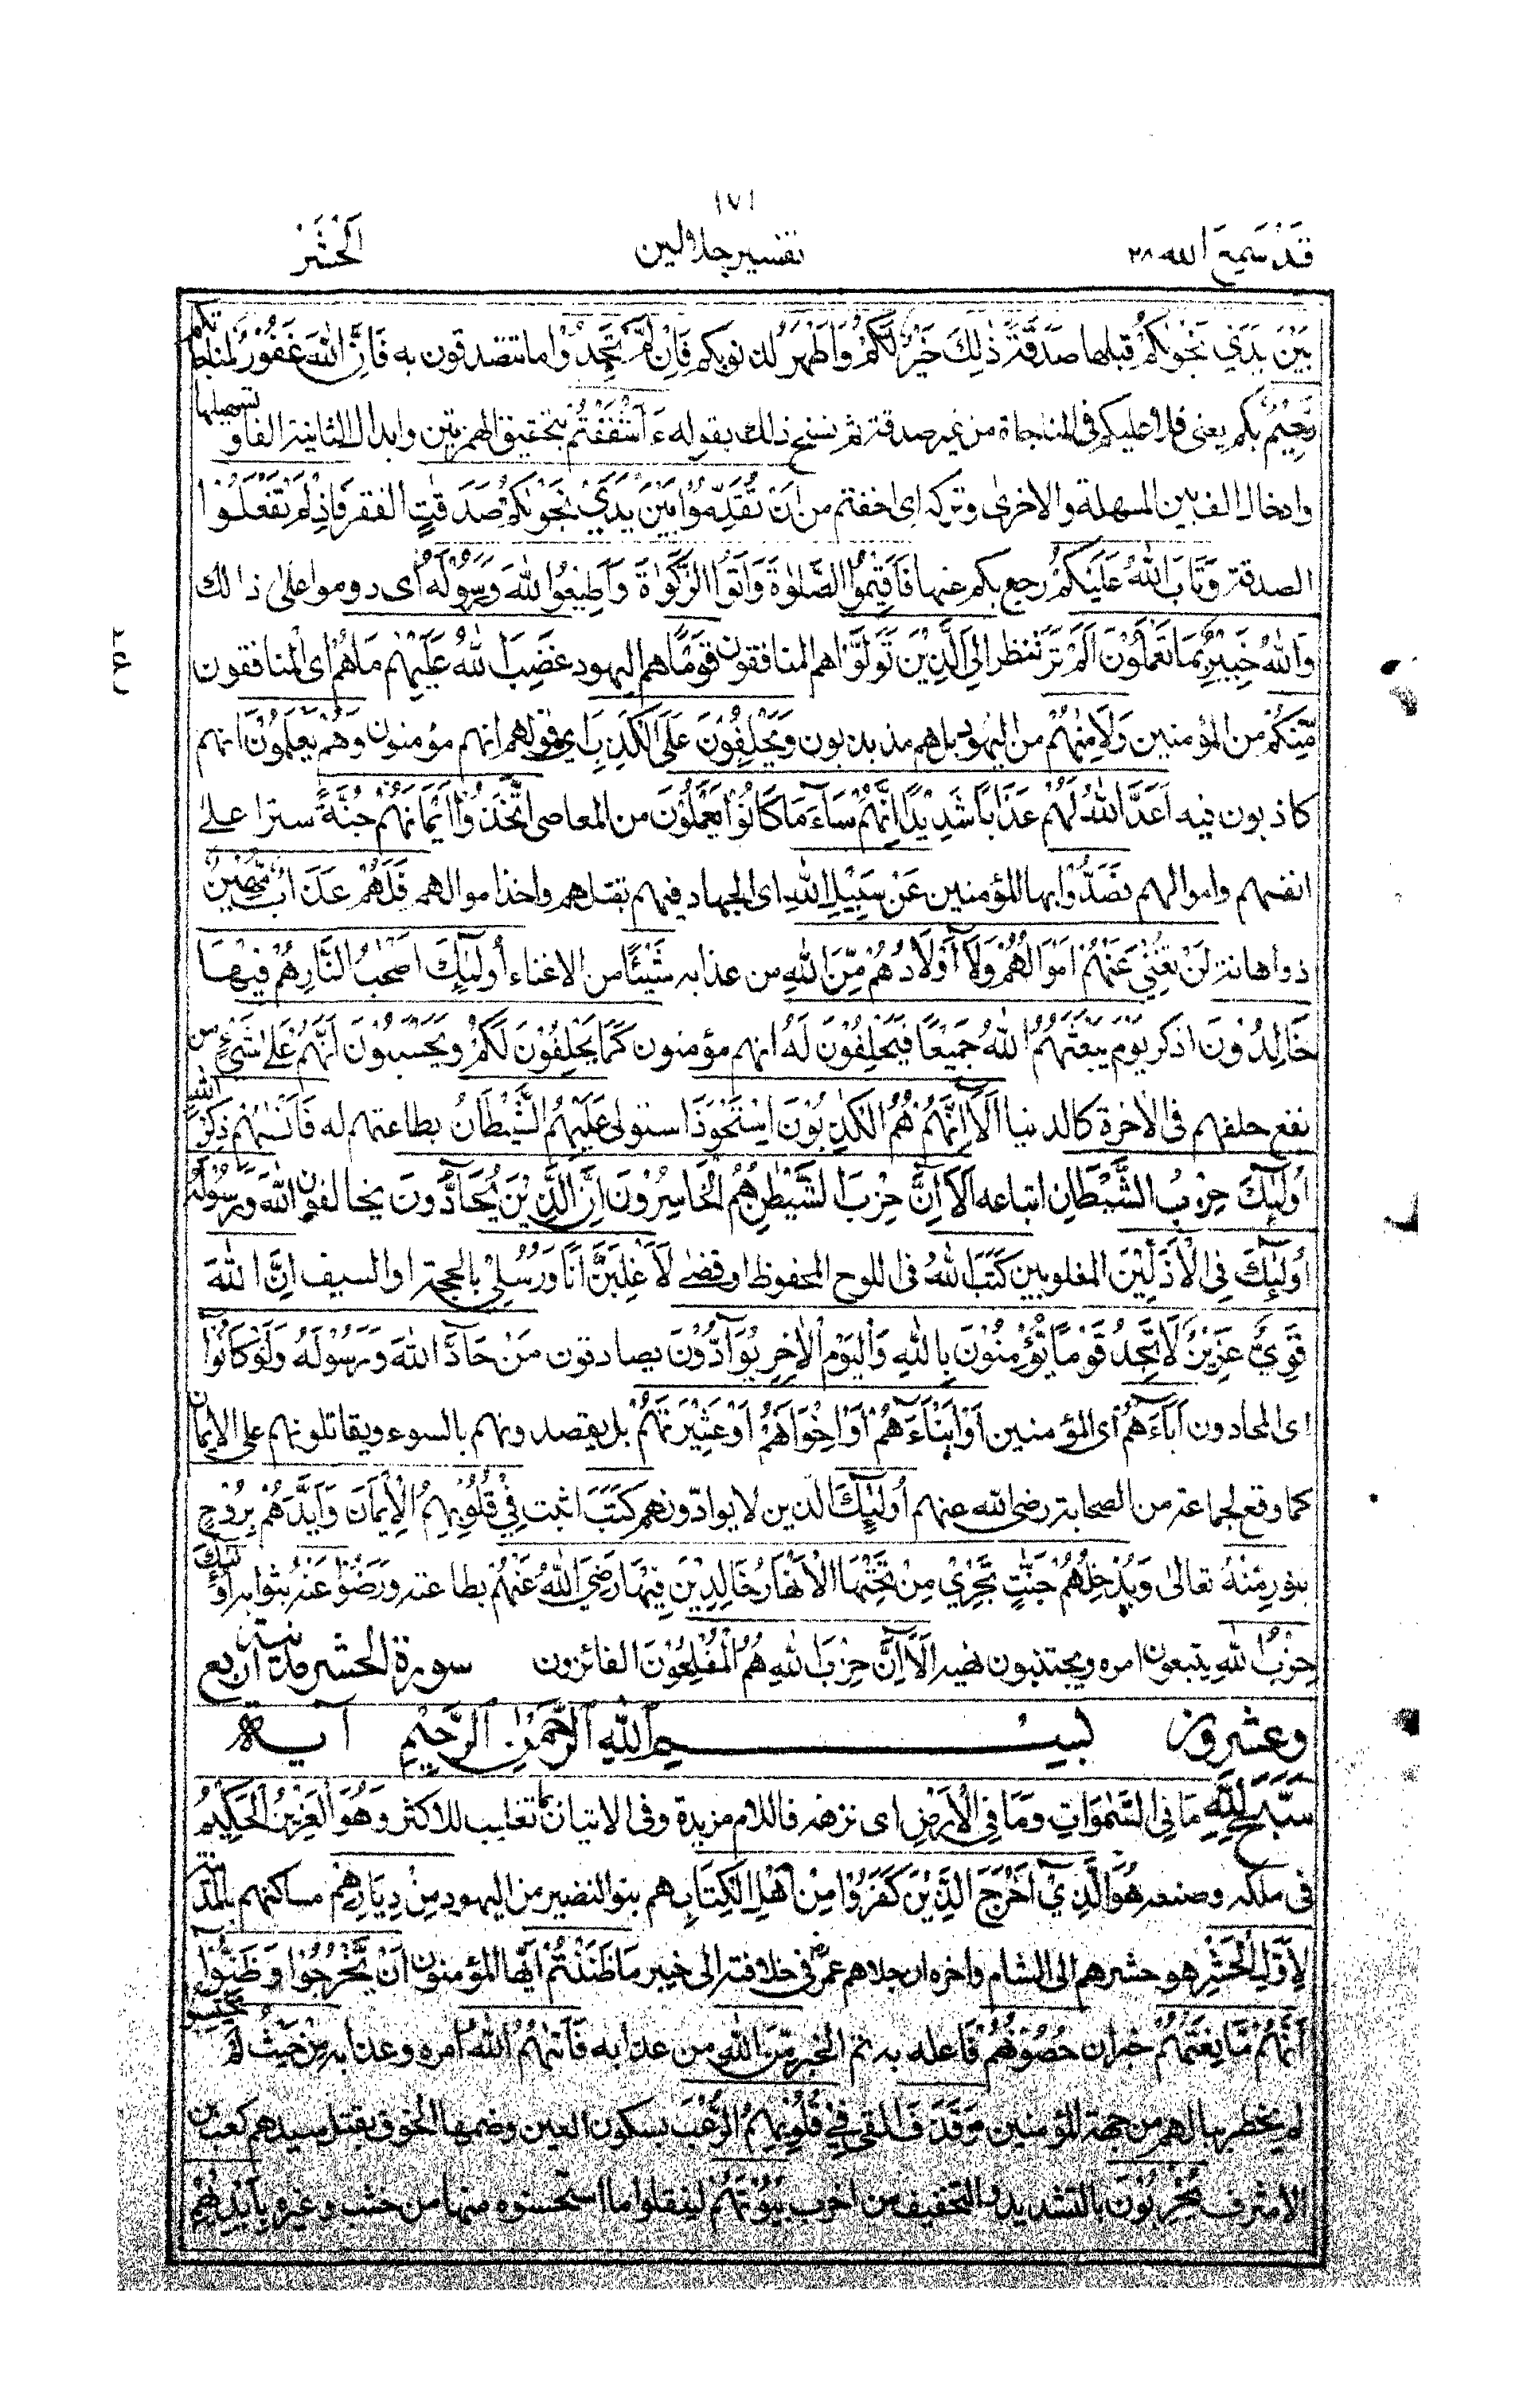 ١٧١
قَدْ سَمِعَ الله ٢٨
تفسير جلالين
اَلْحَشْر
بَيْنَ يَدَيْ نَجْوٰىكُمْ قبلها صَدَقَةً ذٰلِكَ خَيْرٌ لَّكُمْ وَاَطْهَرُ لذنوبكم فَاِنْ لَّمْ تَجِدُوْا ما تتصدقون به فَاِنَّ اللهَ غَفُوْرٌ لمناجاتكم
رَّحِيْمٌ بكم يعنى فلا عليكم فى المناجاة من غير صدقة ثم نسخ ذلك بقوله ءَاَشْفَقْتُمْ بتحقيق الهمزتين وابدال الثانية الفا وتسهيلها
وادخال الف بين المسهلة والاخرى وتركه اى خفتم من اَنْ تُقَدِّمُوْا بَيْنَ يَدَيْ نَجْوٰىكُمْ صَدَقٰتٍ الفقر فَاِذْ لَمْ تَفْعَلُوْا
الصدقة وَتَابَ اللهُ عَلَيْكُمْ رجع بكم عنها فَاَقِيْمُوا الصَّلٰوةَ وَاٰتُوا الزَّكٰوةَ وَاَطِيْعُوا اللهَ وَرَسُوْلَهٗ اى دوموا على ذالك
وَاللهُ خَبِيْرٌۢ بِمَا تَعْمَلُوْنَ اَلَمْ تَرَ تنظر اِلَى الَّذِيْنَ تَوَلَّوْا هم المنافقون قَوْمًا هم اليهود غَضِبَ اللهُ عَلَيْهِمْ مَا هُمْ اى المنافقون
ع
مِّنْكُمْ من المؤمنين وَلَا مِنْهُمْ من اليهود بل هم مذبذبون وَيَحْلِفُوْنَ عَلَى الْكَذِبِ اى قولهم انهم مؤمنون وَهُمْ يَعْلَمُوْنَ انهم
كاذبون فيه اَعَدَّ اللهُ لَهُمْ عَذَابًا شَدِيْدًا اِنَّهُمْ سَآءَ مَا كَانُوْا يَعْمَلُوْنَ من المعاصى اِتَّخَذُوْا اَيْمَانَهُمْ جُنَّةً سترا على
انفسهم واموالهم فَصَدُّوْا بها المؤمنين عَنْ سَبِيْلِ اللهِ اى الجهاد فيهم بقتلهم واخذ اموالهم فَلَهُمْ عَذَابٌ مُّهِيْنٌ
ذو اهانة لَنْ تُغْنِيَ عَنْهُمْ اَمْوَالُهُمْ وَلَآ اَوْلَادُهُمْ مِّنَ اللهِ من عذابه شَيْئًا من الاغناء اُولٰٓئِكَ اَصْحٰبُ النَّارِ هُمْ فِيْهَا
خَالِدُوْنَ اذكر يَوْمَ يَبْعَثُهُمُ اللهُ جَمِيْعًا فَيَحْلِفُوْنَ لَهُ انهم مؤمنون كَمَا يَحْلِفُوْنَ لَكُمْ وَيَحْسَبُوْنَ اَنَّهُمْ عَلٰى شَيْءٍ من
نفع حلفهم فى الآخرة كالدنيا اَلَآ اِنَّهُمْ هُمُ الْكٰذِبُوْنَ اِسْتَحْوَذَ استولى عَلَيْهِمُ الشَّيْطَانُ بطاعتهم له فَاَنْسٰهُمْ ذِكْرَ اللهِ
اُولٰٓئِكَ حِزْبُ الشَّيْطَانِ اتباعه اَلَآ اِنَّ حِزْبَ الشَّيْطٰنِ هُمُ الْخَاسِرُوْنَ اِنَّ الَّذِيْنَ يُحَآدُّوْنَ يخالفون اللهَ وَرَسُوْلَهٗ
اُولٰٓئِكَ فِى الْاَذَلِّيْنَ المغلوبين كَتَبَ اللهُ فى اللوح المحفوظ او قضى لَاَغْلِبَنَّ اَنَا وَرُسُلِيْ بالحجة او السيف اِنَّ اللهَ
قَوِيٌّ عَزِيْزٌ لَا تَجِدُ قَوْمًا يُّؤْمِنُوْنَ بِاللهِ وَالْيَوْمِ الْاٰخِرِ يُوَآدُّوْنَ يصادقون مَنْ حَآدَّ اللهَ وَرَسُوْلَهُ وَلَوْ كَانُوْٓا
اى المحادون اٰبَآءَهُمْ اى المؤمنين اَوْ اَبْنَآءَهُمْ اَوْ اِخْوَانَهُمْ اَوْ عَشِيْرَتَهُمْ بل يقصدونهم بالسوء ويقاتلونهم على الايمان
كما وقع لجماعة من الصحابة رضى الله عنهم اُولٰٓئِكَ الذين لا يوادّونهم كَتَبَ اثبت فِيْ قُلُوْبِهِمُ الْاِيْمَانَ وَاَيَّدَهُمْ بِرُوْحٍ
بنور مِّنْهُ تعالى وَيُدْخِلُهُمْ جَنّٰتٍ تَجْرِيْ مِنْ تَحْتِهَا الْاَنْهَارُ خَالِدِيْنَ فِيْهَا رَضِيَ اللهُ عَنْهُمْ بطاعته وَرَضُوْا عَنْهُ بثوابه اُولٰٓئِكَ
حِزْبُ اللهِ يتبعون امره ويجتنبون نهيه اَلَآ اِنَّ حِزْبَ اللهِ هُمُ الْمُفْلِحُوْنَ الفائزون سورة الحشر مدنية اربع
وعشرون بسم الله الرحمن الرحيم آية
سَبَّحَ لِلّٰهِ مَا فِى السَّمٰوَاتِ وَمَا فِى الْاَرْضِ اى نزهه فاللام مزيدة وفى الاتيان بما تغليب للاكثر وَهُوَ الْعَزِيْزُ الْحَكِيْمُ
فى ملكه وصنعه هُوَ الَّذِيْٓ اَخْرَجَ الَّذِيْنَ كَفَرُوْا مِنْ اَهْلِ الْكِتَابِ هم بنو النضير من اليهود مِنْ دِيَارِهِمْ مساكنهم بالمدينة
لِاَوَّلِ الْحَشْرِ هو حشرهم الى الشام واخره ان جلاهم عمر فى خلافته الى خيبر مَا ظَنَنْتُمْ ايها المؤمنون اَنْ يَّخْرُجُوْا وَظَنُّوْٓا
اَنَّهُمْ مَّانِعَتُهُمْ خبران حُصُوْنُهُمْ فاعله به تم الخبر مِّنَ اللهِ من عذابه فَاَتٰىهُمُ اللهُ امره وعذابه مِنْ حَيْثُ لَمْ يَحْتَسِبُوْا
لم يخطر ببالهم من جهة المؤمنين وَقَذَفَ القى فِيْ قُلُوْبِهِمُ الرُّعْبَ بسكون العين وضمها الخوف بقتل سيدهم كعب بن
الاشرف يُخْرِبُوْنَ بالتشديد والتخفيف من اخرب بُيُوْتَهُمْ لينقلوا ما استحسنوه منها من خشب وغيره بِاَيْدِيْهِمْ